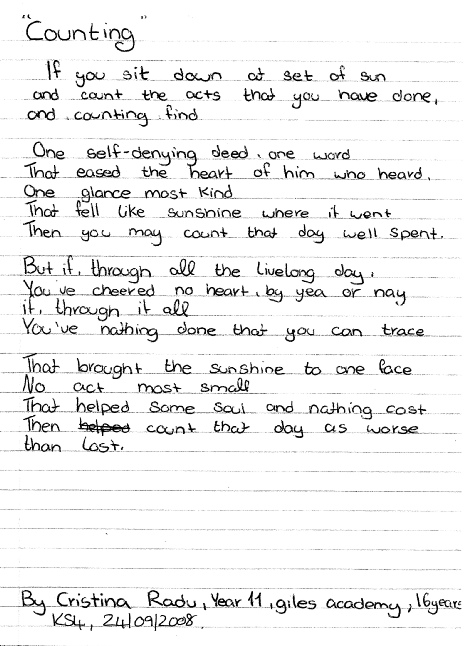 "Counting"
If you sit down at set of sun
and count the acts that you have done,
and counting find
One self-denying deed, one word
That eased the heart of him who heard,
One glance most kind
That fell like sunshine where it went
Then you may count that day well spent.
But if, through all the livelong day,
You've cheered no heart, by yea or nay
it, through it all
You've nothing done that you can trace
That brought the sunshine to one face
No act most small
That helped some soul and nothing cost
Then helped count that day as worse
than lost.
By Cristina Radu, Year 11, giles academy, 16years
KS4, 24/09/2008.